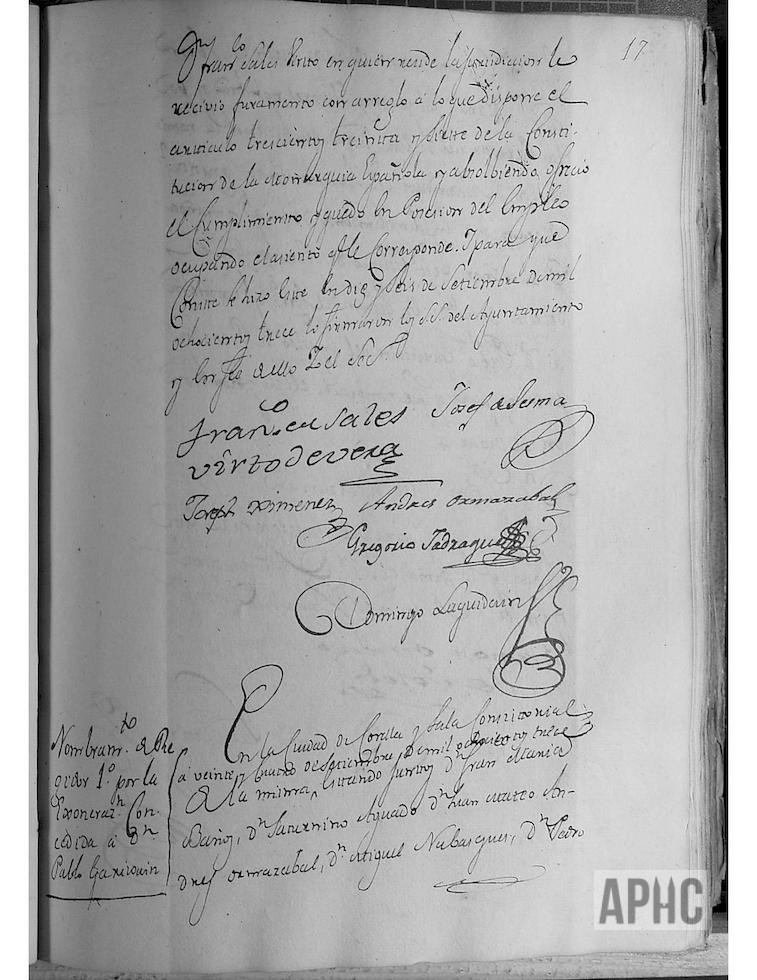 17
Dn Franco Sales Virto en quien reside la jurisdicion le
recivio juramento con arreglo a lo que dispone el
articulo trescientos treinta y siete de la Consti-
tucion de la Monarquia Española y absolbiendo ofrecio
el Cumplimiento y quedo en Posesion del Empleo
ocupando el asiento qe le Corresponde. Y para que
Conste se hizo este en diez y seis de Setiembre de mil
ochocientos trece lo firmaron los SS. del Ayuntamiento
y Por fe de ello Yo el Secº
Franco en Sales Josef de Sesma
virto de vera
Joseph Ximenez Andres Ormazabal
Gregorio Tadragues
Domingo Laquidain
Nombramto de Re
gidor 1º por la
Exoneran Con
cedida á Dn
Pablo Garisoain
En la Ciudad de Corella y Sala Consistorial
de la misma,
a veinte y cuatro de Setiembre de mil ochocientos trece
Estando juntos Dn Juan Maria
Baños, Dn Saturnino Aguado Dn Juan Mateo An-
dres Ormazabal, Dn Miguel Nabasques, Dn Pedro
APHC